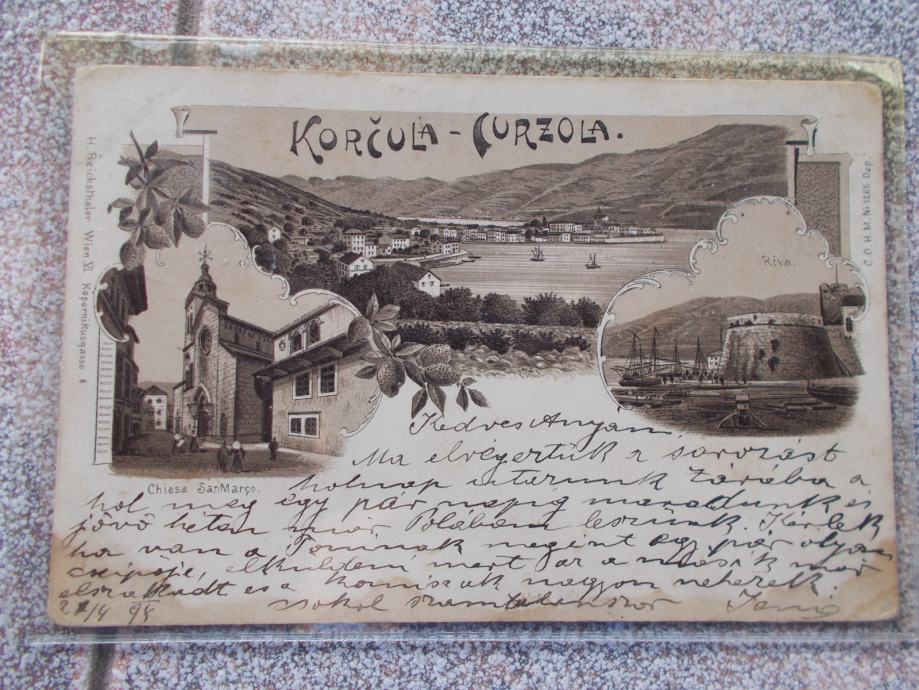 KORČULA - CURZOLA.
H. Reichsthaler Wien VI Kopernikusgasse 6
C.O.H.M. № 1265 Dep.
Riva.
Chiesa SanMarço.
Kedves Anyám.
Ma elvégertük a sorozást
holnap utazunk Zárába a
hol meg egy pár napig maradunk és
jövő héten már Polában leszünk. Kérlek
ha van a Toninak megint egy pár olyan
cipője, elküldem mert az a másik már
elszakadt és a komiszak nagyon nehezek.
/4 95 csokol számtalanszor Jenő